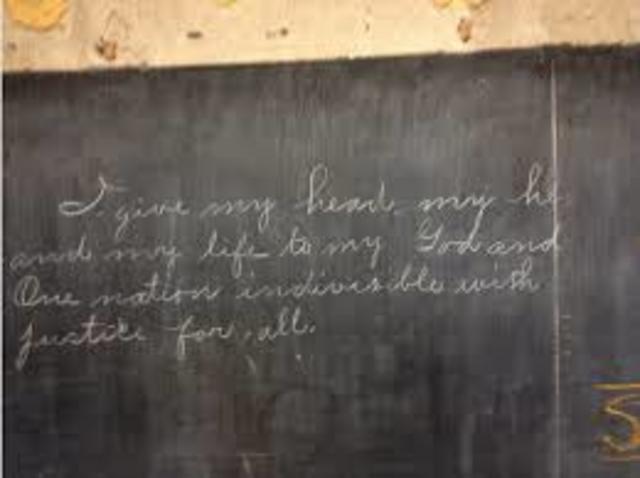 I give my head, my he
and my life to my God and
One nation indivisible with
justice for all.
S